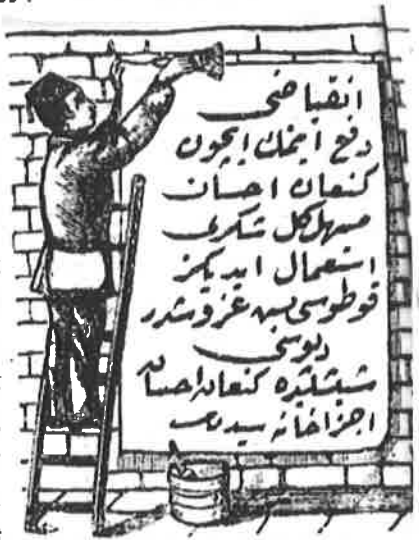 انقباضى
دفع ايتمك ايچون
كنعان احسان
مسهل كل شكرى
استعمال ايديكز
قوطوسى بش غروشدر
ديپوسى
شيشليده كنعان احسان
اجزاخانه سيدر